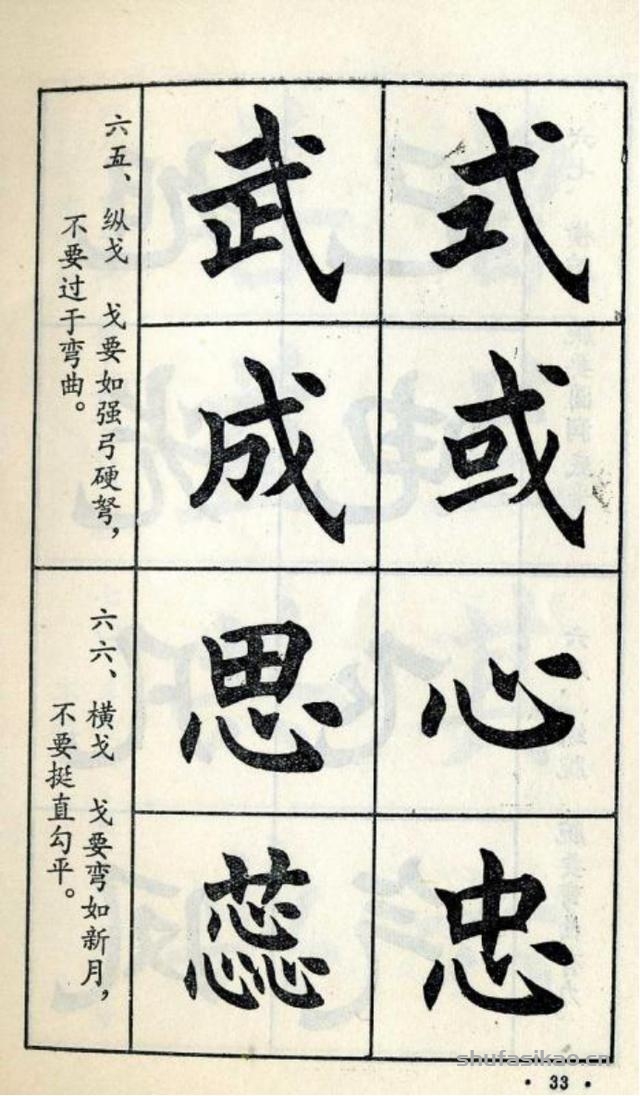 式
武
或
成
六五、纵戈 戈要如强弓硬弩，
不要过于弯曲。
心
思
忠
蕊
六六、横戈 戈要弯如新月，
不要挺直勾平。
shufasikao.cn
· 33 ·